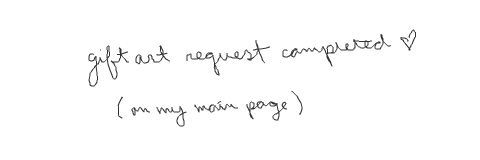 gift art request completed ♡
(on my main page)